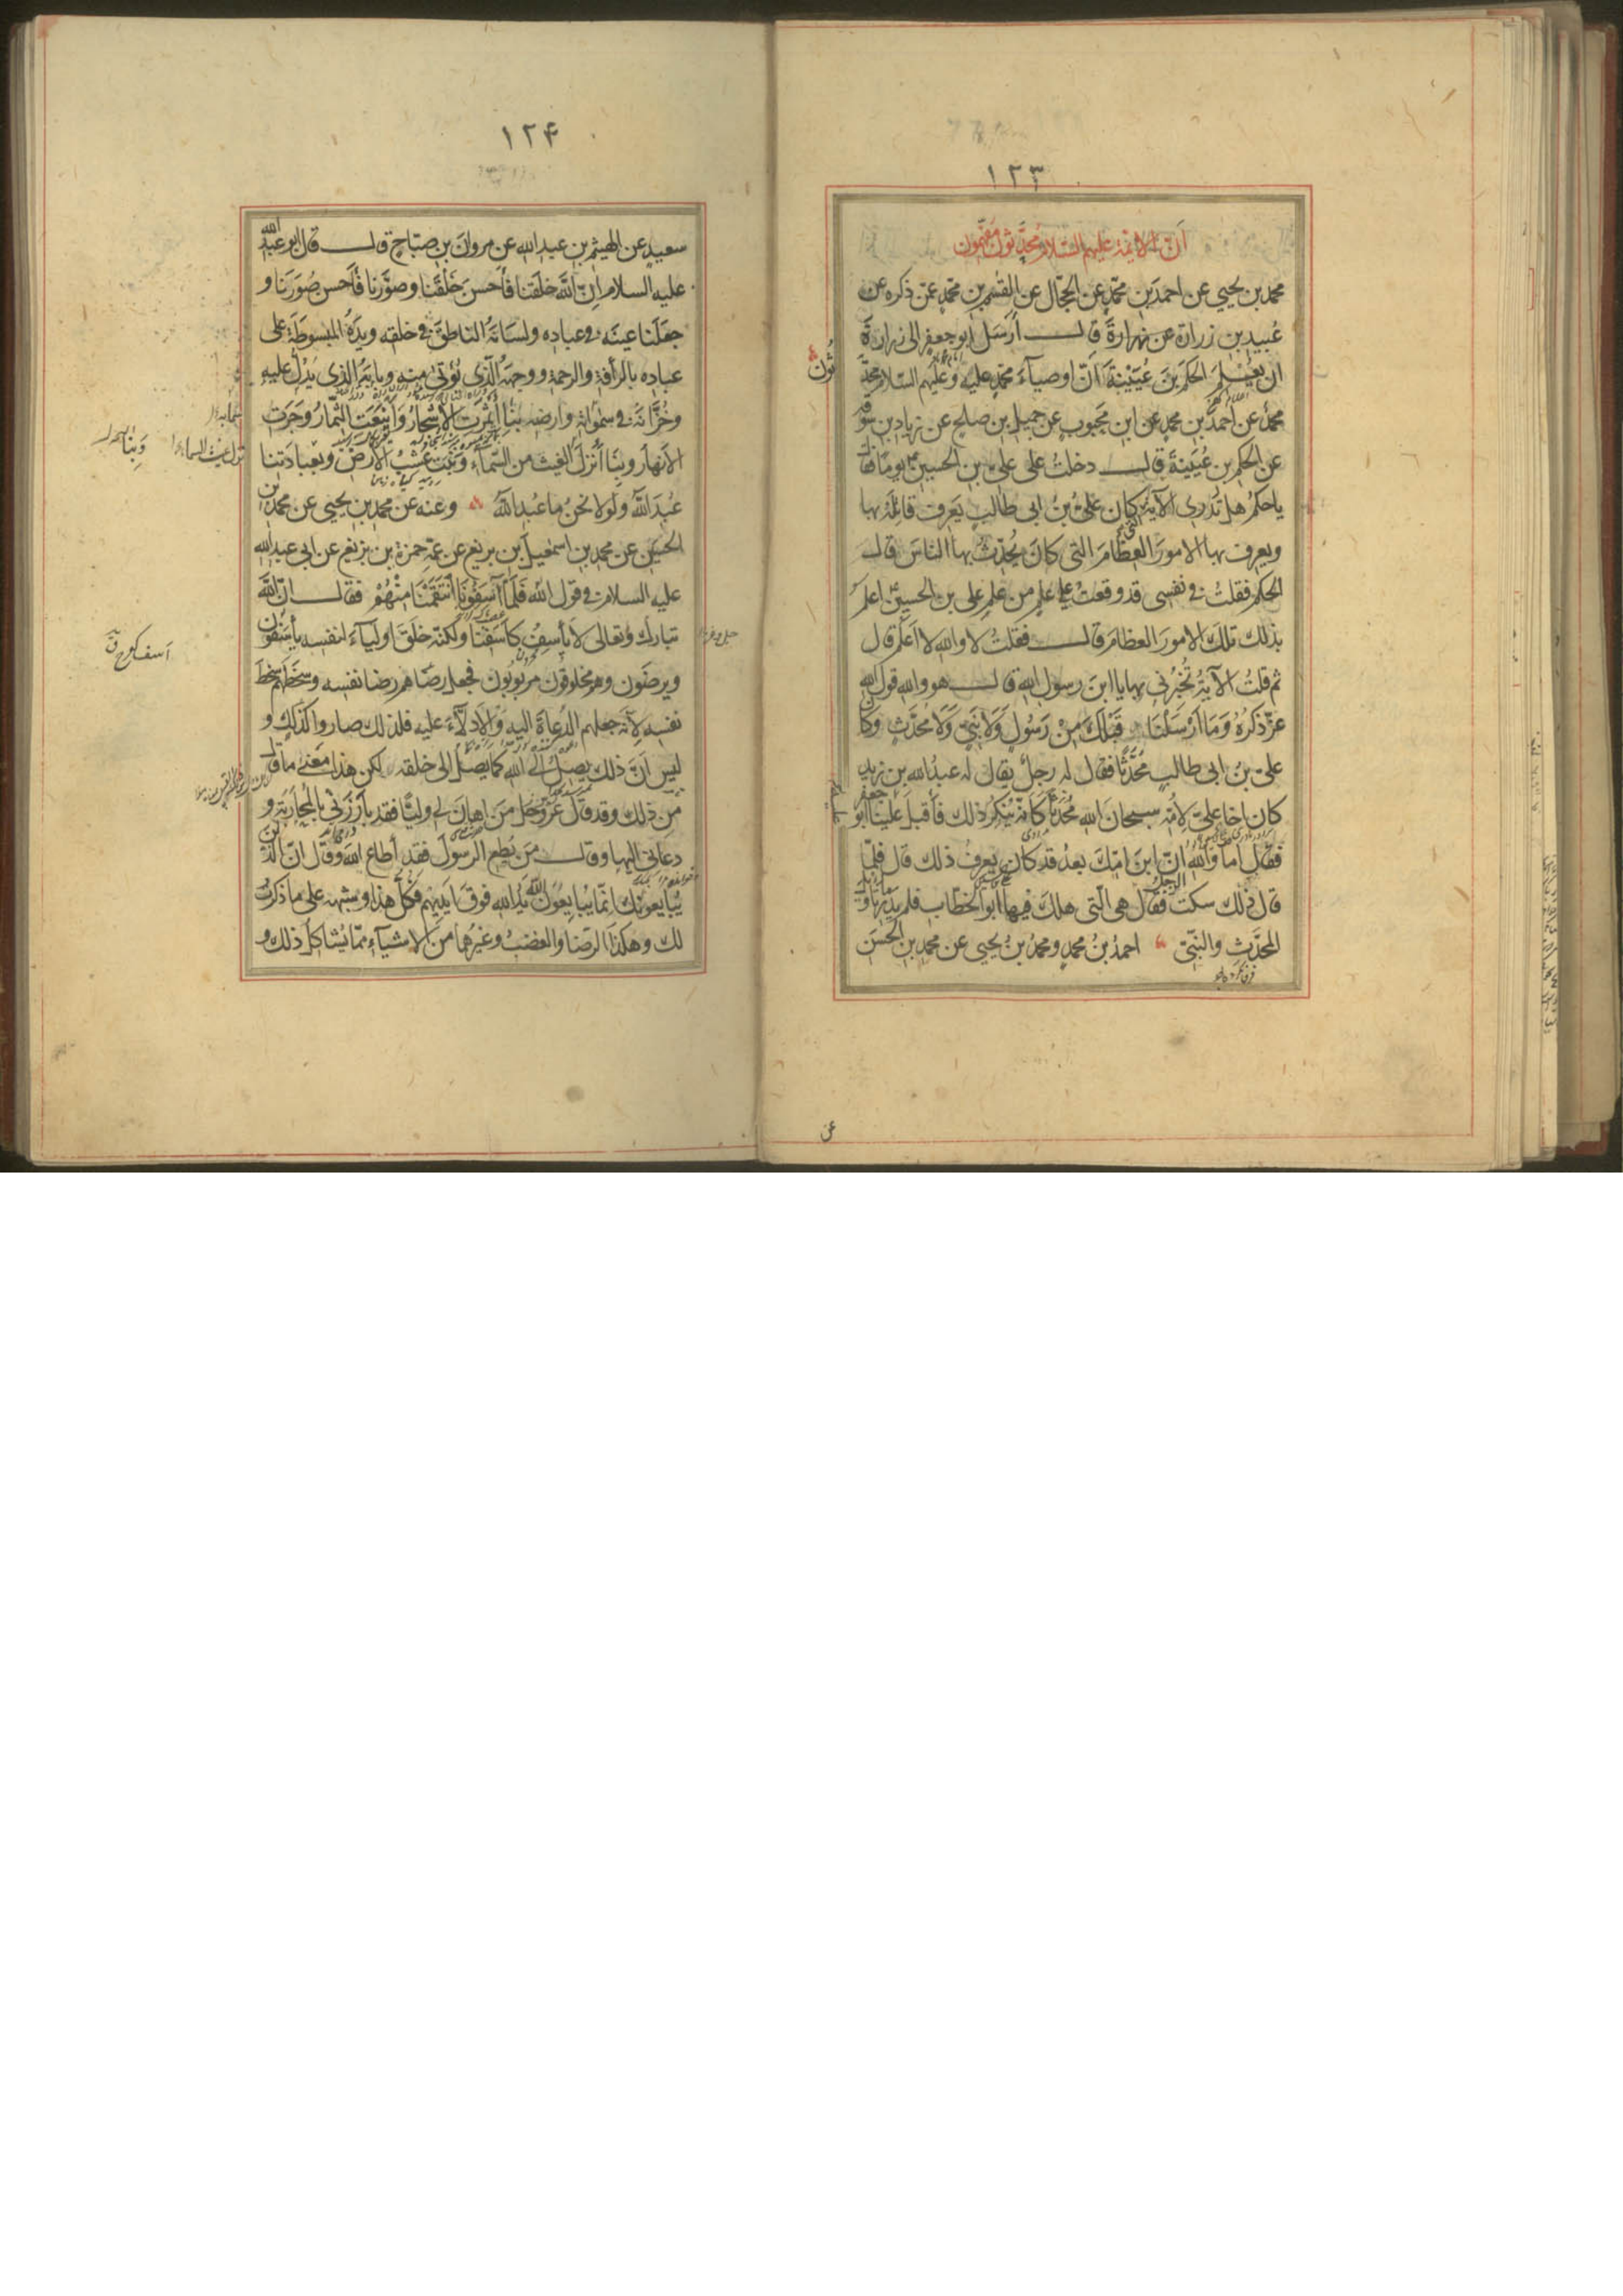 ١٢٣
ان الائمة عليهم السلام محدثون مفهمون
محمد بن يحيى عن احمد بن محمد عن الحجال عن القسم بن محمد عمن ذكره عن
عُبيد بن زرارة عن زرارة قال أرسل أبو جعفر الى زرارة
ان يُعلم الحكم بن عُيَيْنة أنّ اوصيآء محمد عليه وعليهم السلام محدّ
ثون
محمد عن احمد بن محمد عن ابن محبوب عن جميل بن صلح عن زياد بن سوقه
عن الحكم بن عُيَينة قال دخلتُ على علي بن الحسين يومًا فقال
ياحكم هل تدرى الآية التي كان علىّ بنُ ابى طالب يعرف قاتله بها
ويعرف بها الامور العظام التى كان يُحدّث بها الناس قال
الحكم فقلتُ في نفسى قد وقعتُ على علم من علم على بن الحسين اعلم
بذلك تلك الامور العظام قال فقلتُ لا والله لا اعلم قال
ثم قلتُ الآيةُ تُخبرُني بها يا ابن رسول الله قال هو والله قول الله
عزّ ذكرُهُ وَمَا أَرْسَلْنَا قَبْلَكَ مِنْ رَسُولٍ وَلَا نَبِيٍّ وَلَا مُحَدَّثٍ وكان
علىّ بنُ ابى طالب مُحَدَّثًا فقال له رجلٌ يقال له عبدُ الله بن زيد
كان اخا علىّ لأمّه سبحان الله مُحدَّثًا كأنّه يُنكرُ ذلك فأقبل علينا ابو جعفر
فقال أما والله انّ ابن امّك بعدُ قد كان يعرفُ ذلك قال فلمّا
قال ذلك سكت الرجل فقال هى الّتى هلك فيها أبو الخطّاب فلم يدر ما تأويل
المحدَّث والنبىّ احمدُ بنُ محمد ومحمدُ بنُ يحيى عن محمد بن الحسن
عن
١٢۴
سعيدٍ عن الهيثم بن عبد الله عن مروان بن صبّاح قال قال ابو عبد الله
عليه السلام إنّ الله خلقنا فأحسن خَلْقَنا وصوَّرنا فأحسن صُوَرَنا و
جعلنا عينَه فى عباده ولسانَهُ الناطقَ فى خلقه ويدَهُ المبسوطَةَ على
عباده بالرأفة والرحمة ووجهَهُ الّذى يُؤتى منه وبابَه الذى يدُلّ عليه
وخُزّانَهُ فى سمٰواته وارضه بنا أثمرت الأشجارُ وأَيْنَعَت الثّمارُ وجَرَت
الأنهارُ وبنا أنزل الغيث من السّمآء ونبت عُشْبُ الأرض وبعبادتنا
عُبدَ اللهُ ولولا نحنُ ما عُبد اللهُ وعنه عن محمد بن يحيى عن محمد بن
الحسين عن محمد بن اسمٰعيل بن بزيع عن عمّه حمزة بن بزيع عن ابى عبد الله
عليه السلام فى قول الله فَلَمَّا آسَفُونَا انْتَقَمْنَا مِنْهُمْ فقال انّ الله
تبارك وتعالى لا يأسِفُ كأسفنا ولكنّه خلَقَ اوليآء لنفسه يأسَفُون
ويرضَون وهم مخلوقُون مربُوبُون فجعل رضاهم رضا نفسه وسخطَهم سخطَ
نفسه لأنّه جعلهم الدُّعاةَ اليه والادلّآءَ عليه فلذلك صاروا كذلك و
ليس أنّ ذلك يصلُ الى الله كما يصلُ الى خلقه لكن هذا معنى ما قال
من ذلك وقد قال عزّ وجلّ من اهان لى وليًّا فقد بارزنى بالمحاربة و
دعانى اليها وقال من يُطع الرسول فقد أطاع الله وقال انّ الّذين
يُبايعونك انّما يُبايعُون الله يَدُ الله فوق ايديهم فكلّ هذا وشبهه على ما ذكرتُ
لك وهكذا الرّضا والغضبُ وغيرُهما من الاشيآء ممّا يُشاكلُ ذلك و